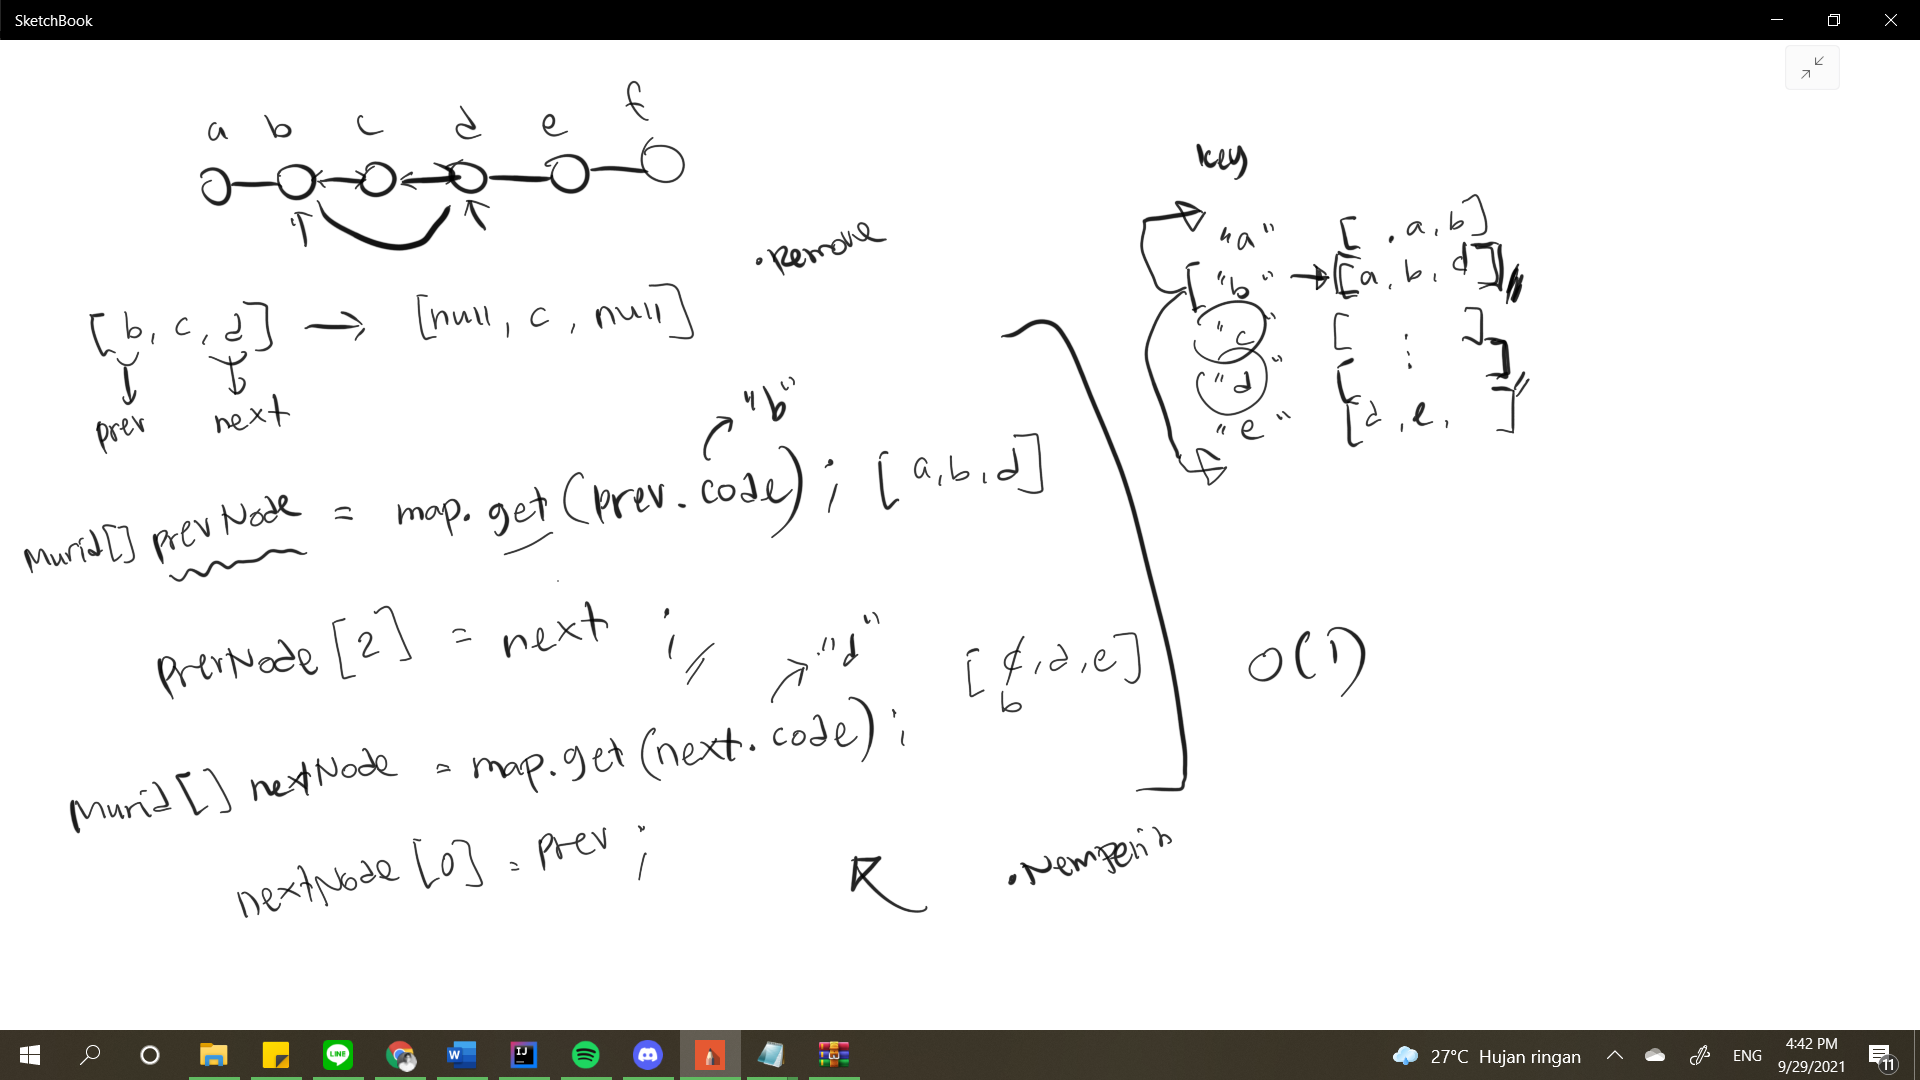 SketchBook
a b c d e f
• Remove
[b, c, d] → [null, c, null]
prev next
"b"
Murid[] prevNode = map.get(prev.code); [a, b, d]
prevNode[2] = next;
"d"
[¢, d, e]
b
Murid[] nextNode = map.get(next.code);
nextNode[0] = prev;
key
"a" [ . a, b]
"b" → [a, b, d]
"c" [ ⋮ ]
"d" [ ]
"e" [d, e, ]
O(1)
27°C Hujan ringan
ENG
4:42 PM
9/29/2021
11